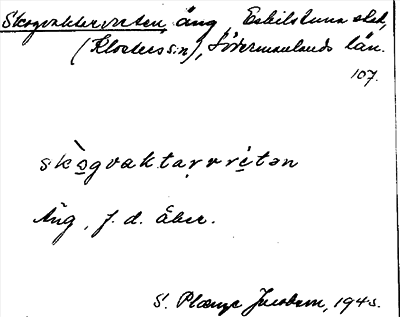 Skogvaktervreten, äng Eskilstuna stad,
(Klosters sn), Södermanlands län.
107.
skògvaktarvretən
Äng, f. d. åker.
S. Jacobson, 1945.